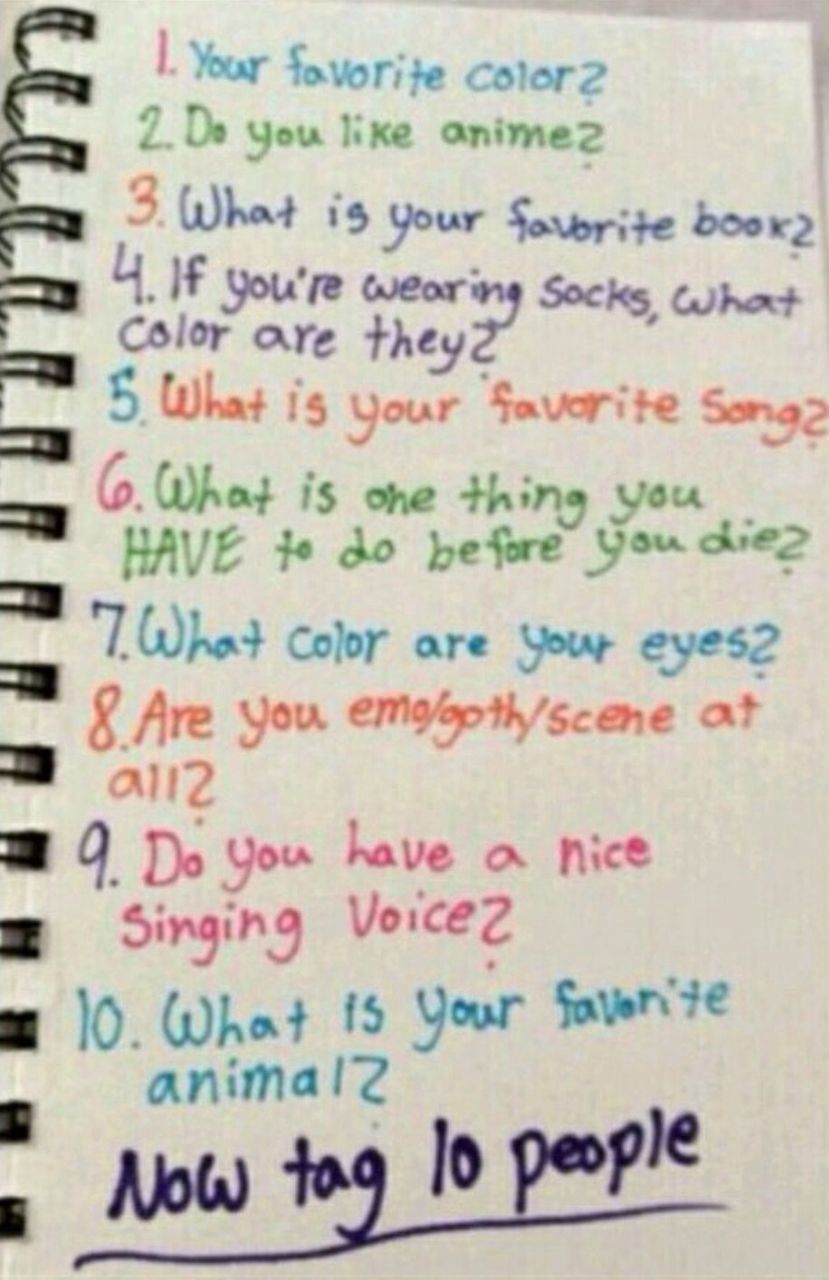 1. Your favorite color?
2. Do you like anime?
3. What is your favorite book?
4. If you're wearing socks, what
color are they?
5. What is your favorite song?
6. What is one thing you
HAVE to do before you die?
7. What color are your eyes?
8. Are you emo/goth/scene at
all?
9. Do you have a nice
singing voice?
10. What is your favorite
animal?
Now tag 10 people